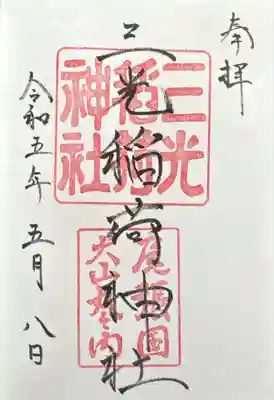 奉拝
三光稲荷神社
令和五年 五月 八日
三光
稲荷
神社
尾張國